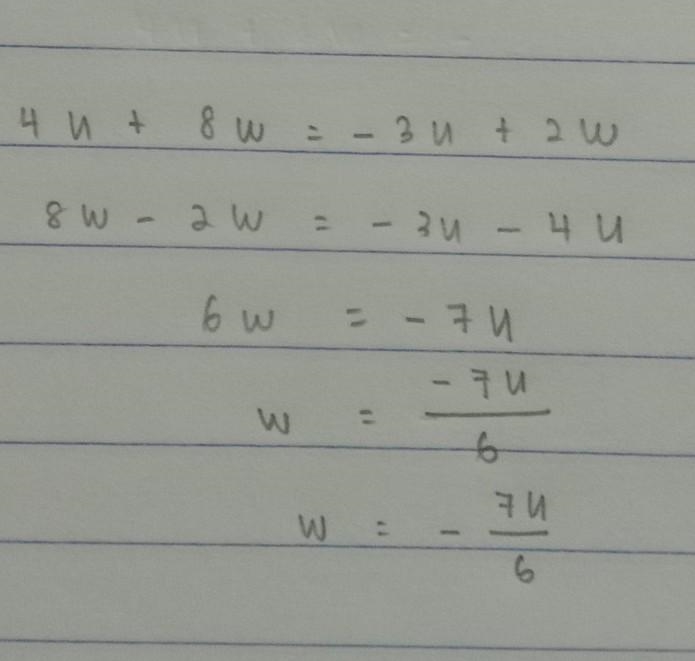 4u + 8w = -3u + 2w
8w - 2w = -3u - 4u
6w = -7u
w = -7u/6
w = - 7u/6